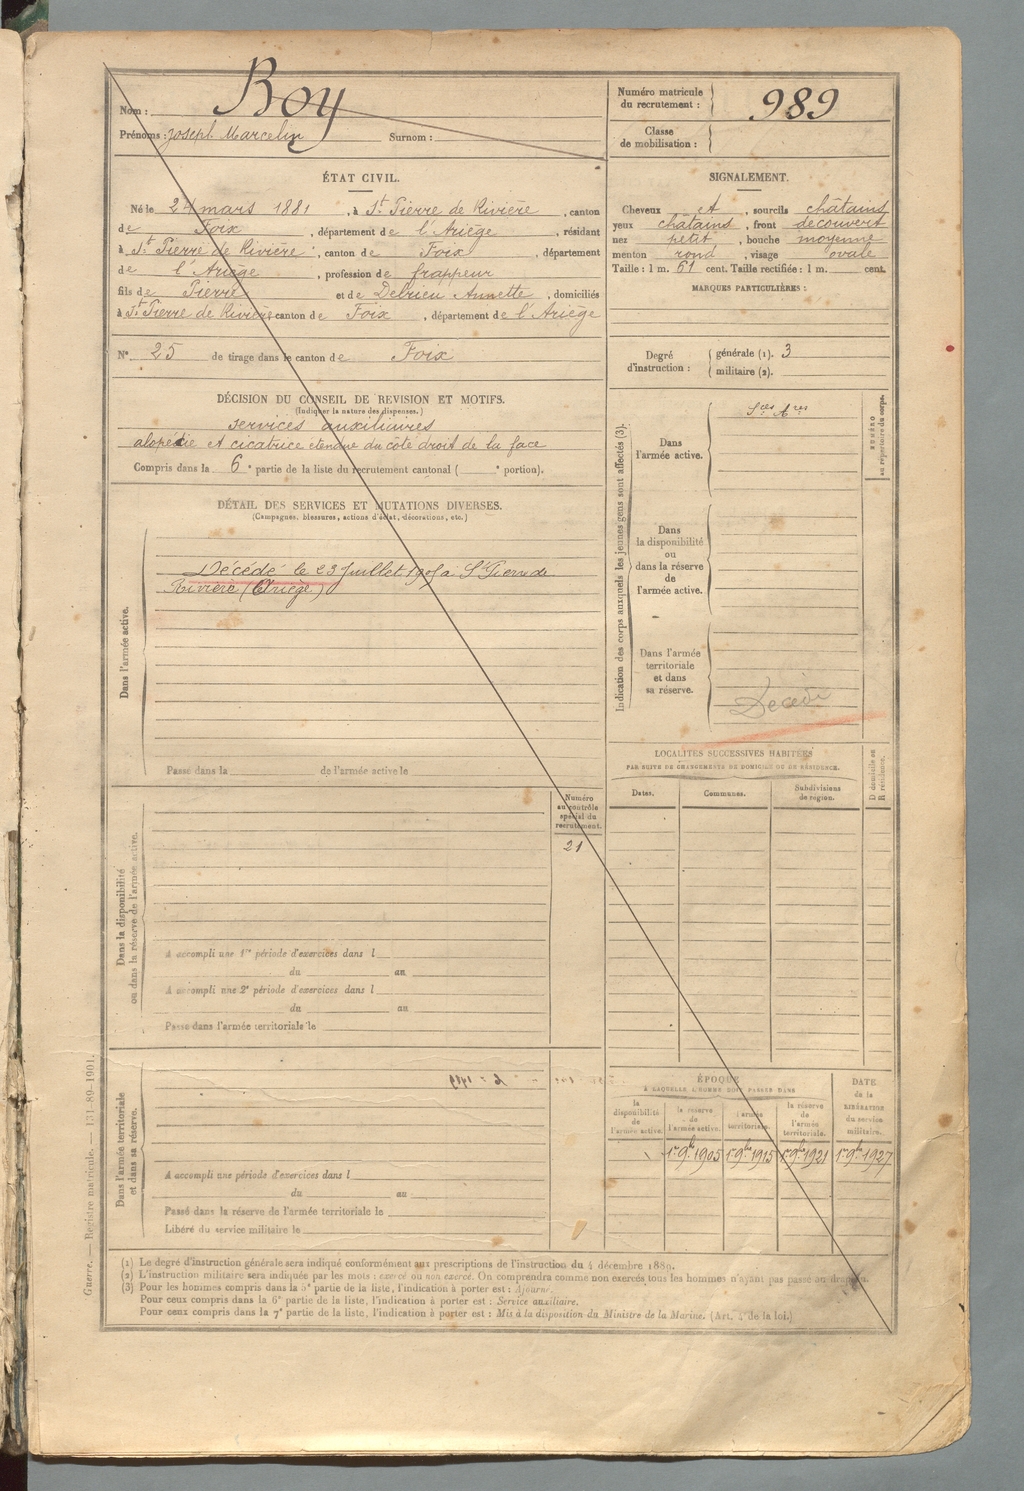 Nom : Boy
Prénoms : Joseph Marcelin Surnom :
Numéro matricule du recrutement : 989
Classe de mobilisation :
ÉTAT CIVIL.
Né le 24 mars 1881, à St Pierre de Rivière, canton
de Foix, département de l'Ariège, résidant
à St Pierre de Rivière, canton de Foix, département
de l'Ariège, profession de frappeur
fils de Pierre et de Delrieu Annette, domiciliés
à St Pierre de Rivière canton de Foix, département de l'Ariège
N° 25 de tirage dans le canton de Foix
SIGNALEMENT.
Cheveux et, sourcils châtains
yeux châtains, front découvert
nez petit, bouche moyenne
menton rond, visage ovale
Taille : 1 m. 61 cent. Taille rectifiée : 1 m. cent.
MARQUES PARTICULIÈRES :
Degré d'instruction : générale (1). 3
militaire (2).
DÉCISION DU CONSEIL DE REVISION ET MOTIFS.
(Indiquer la nature des dispenses.)
services auxiliaires
alopécie et cicatrice étendue du côté droit de la face
Compris dans la 6e partie de la liste du recrutement cantonal ( e portion).
DÉTAIL DES SERVICES ET MUTATIONS DIVERSES.
(Campagnes, blessures, actions d'éclat, décorations, etc.)
Dans l'armée active.
Décédé le 23 Juillet 1905 a St Pierre de
Rivière (Ariège)
Passé dans la de l'armée active le
Indication des corps auxquels les jeunes gens sont affectés (3).
Dans l'armée active.
Sces Ares
NUMÉRO au répertoire du corps.
Dans la disponibilité ou dans la réserve de l'armée active.
Dans l'armée territoriale et dans sa réserve.
Décédé
LOCALITÉS SUCCESSIVES HABITÉES
PAR SUITE DE CHANGEMENTS DE DOMICILE OU DE RÉSIDENCE.
Dates. Communes. Subdivisions de région. D domicile ou R résidence.
Dans la disponibilité ou dans la réserve de l'armée active.
Numéro au contrôle spécial du recrutement.
21
A accompli une 1re période d'exercices dans l
du au
A accompli une 2e période d'exercices dans l
du au
Passé dans l'armée territoriale le
Dans l'armée territoriale et dans sa réserve.
A accompli une période d'exercices dans l
du au
Passé dans la réserve de l'armée territoriale le
Libéré du service militaire le
ÉPOQUE
À LAQUELLE L'HOMME DOIT PASSER DANS
la disponibilité de l'armée active. la réserve de l'armée active. l'armée territoriale. la réserve de l'armée territoriale. DATE de la LIBÉRATION du service militaire.
1er 9bre 1905 1er 9bre 1915 1er 9bre 1921 1er 9bre 1927
(1) Le degré d'instruction générale sera indiqué conformément aux prescriptions de l'instruction du 4 décembre 1889.
(2) L'instruction militaire sera indiquée par les mots : exercé ou non exercé. On comprendra comme non exercés tous les hommes n'ayant pas passé au drapeau.
(3) Pour les hommes compris dans la 5e partie de la liste, l'indication à porter est : Ajourné.
Pour ceux compris dans la 6e partie de la liste, l'indication à porter est : Service auxiliaire.
Pour ceux compris dans la 7e partie de la liste, l'indication à porter est : Mis à la disposition du Ministre de la Marine. (Art. 4 de la loi.)
Guerre. — Registre matricule. — 151-89-1901.